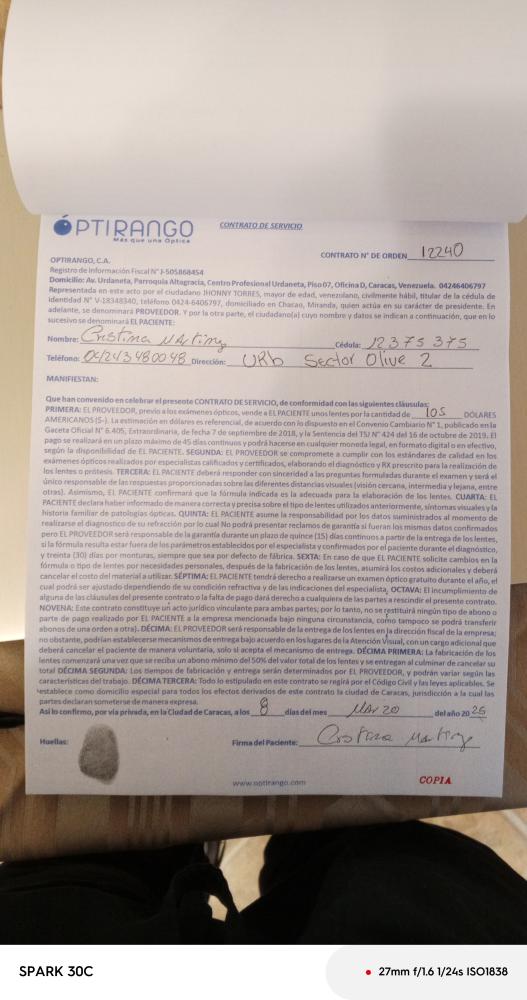 OPTIRANGO
Más que una Óptica
CONTRATO DE SERVICIO
CONTRATO N° DE ORDEN 12240
OPTIRANGO, C.A.
Registro de Información Fiscal N° J-505868454
Domicilio: Av. Urdaneta, Parroquia Altagracia, Centro Profesional Urdaneta, Piso 07, Oficina D, Caracas, Venezuela. 04246406797
Representada en este acto por el ciudadano JHONNY TORRES, mayor de edad, venezolano, civilmente hábil, titular de la cédula de
identidad N° V-18348340, teléfono 0424-6406797, domiciliado en Chacao, Miranda, quien actúa en su carácter de presidente. En
adelante, se denominará PROVEEDOR. Y por la otra parte, el ciudadano(a) cuyo nombre y datos se indican a continuación, que en lo
sucesivo se denominará EL PACIENTE:
Nombre: Cristina Martinez Cédula: 12375375
Teléfono: 04243480048 Dirección: URb Sector Olive 2
MANIFIESTAN:
Que han convenido en celebrar el presente CONTRATO DE SERVICIO, de conformidad con las siguientes cláusulas:
PRIMERA: EL PROVEEDOR, previo a los exámenes ópticos, vende a EL PACIENTE unos lentes por la cantidad de 105 DÓLARES
AMERICANOS ($-). La estimación en dólares es referencial, de acuerdo con lo dispuesto en el Convenio Cambiario N° 1, publicado en la
Gaceta Oficial N° 6.405, Extraordinaria, de fecha 7 de septiembre de 2018, y la Sentencia del TSJ N° 424 del 16 de octubre de 2019. El
pago se realizará en un plazo máximo de 45 días continuos y podrá hacerse en cualquier moneda legal, en formato digital o en efectivo,
según la disponibilidad de EL PACIENTE. SEGUNDA: EL PROVEEDOR se compromete a cumplir con los estándares de calidad en los
exámenes ópticos realizados por especialistas calificados y certificados, elaborando el diagnóstico y RX prescrito para la realización de
los lentes o prótesis. TERCERA: EL PACIENTE deberá responder con sinceridad a las preguntas formuladas durante el examen y será el
único responsable de las respuestas proporcionadas sobre las diferentes distancias visuales (visión cercana, intermedia y lejana, entre
otras). Asimismo, EL PACIENTE confirmará que la fórmula indicada es la adecuada para la elaboración de los lentes. CUARTA: EL
PACIENTE declara haber informado de manera correcta y precisa sobre el tipo de lentes utilizados anteriormente, síntomas visuales y la
historia familiar de patologías ópticas. QUINTA: EL PACIENTE asume la responsabilidad por los datos suministrados al momento de
realizarse el diagnostico de su refracción por lo cual No podrá presentar reclamos de garantía si fueran los mismos datos confirmados
pero EL PROVEEDOR será responsable de la garantía durante un plazo de quince (15) días continuos a partir de la entrega de los lentes,
si la fórmula resulta estar fuera de los parámetros establecidos por el especialista y confirmados por el paciente durante el diagnóstico,
y treinta (30) días por monturas, siempre que sea por defecto de fábrica. SEXTA: En caso de que EL PACIENTE solicite cambios en la
fórmula o tipo de lentes por necesidades personales, después de la fabricación de los lentes, asumirá los costos adicionales y deberá
cancelar el costo del material a utilizar. SÉPTIMA: EL PACIENTE tendrá derecho a realizarse un examen óptico gratuito durante el año, el
cual podrá ser ajustado dependiendo de su condición refractiva y de las indicaciones del especialista, OCTAVA: El incumplimiento de
alguna de las cláusulas del presente contrato o la falta de pago dará derecho a cualquiera de las partes a rescindir el presente contrato.
NOVENA: Este contrato constituye un acto jurídico vinculante para ambas partes; por lo tanto, no se restituirá ningún tipo de abono o
parte de pago realizado por EL PACIENTE a la empresa mencionada bajo ninguna circunstancia, como tampoco se podrá transferir
abonos de una orden a otra). DÉCIMA: EL PROVEEDOR será responsable de la entrega de los lentes en la dirección fiscal de la empresa;
no obstante, podrían establecerse mecanismos de entrega bajo acuerdo en los lugares de la Atención Visual, con un cargo adicional que
deberá cancelar el paciente de manera voluntaria, solo si acepta el mecanismo de entrega. DÉCIMA PRIMERA: La fabricación de los
lentes comenzará una vez que se reciba un abono mínimo del 50% del valor total de los lentes y se entregan al culminar de cancelar su
total DÉCIMA SEGUNDA: Los tiempos de fabricación y entrega serán determinados por EL PROVEEDOR, y podrán variar según las
características del trabajo. DÉCIMA TERCERA: Todo lo estipulado en este contrato se regirá por el Código Civil y las leyes aplicables. Se
establece como domicilio especial para todos los efectos derivados de este contrato la ciudad de Caracas, jurisdicción a la cual las
partes declaran someterse de manera expresa.
Así lo confirmo, por vía privada, en la Ciudad de Caracas, a los 8 días del mes Marzo del año 2026
Huellas: Firma del Paciente: Cristina Martinez
www.optirango.com
COPIA
SPARK 30C
27mm f/1.6 1/24s ISO1838